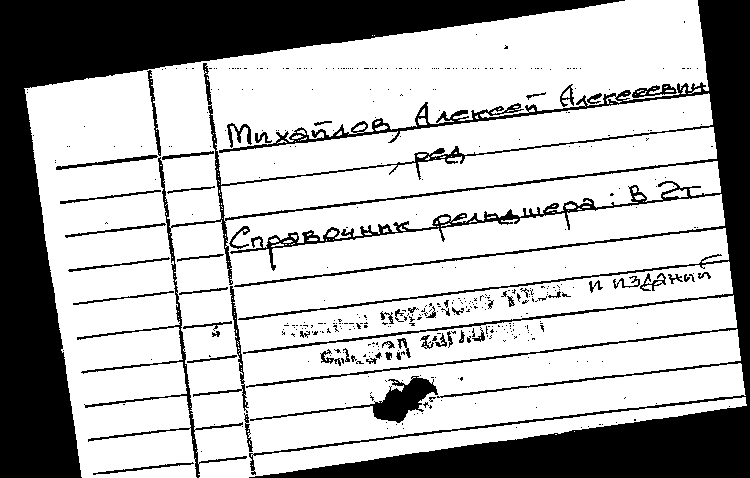 Михайлов, Алексей Алексеевич
, ред
Справочник фельдшера: В 2т
перечень тома и изданий